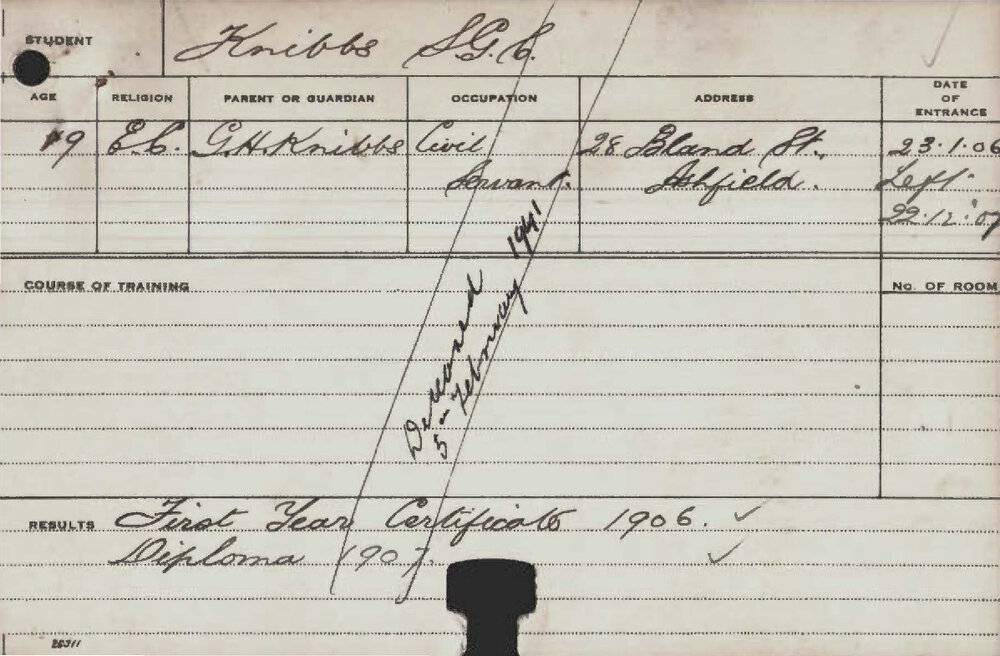 STUDENT Knibbs S.G.C.
AGE RELIGION PARENT OR GUARDIAN OCCUPATION ADDRESS DATE OF ENTRANCE
19 E.C. G.H. Knibbs Civil 28 Bland St., 23.1.06
Servant. Ashfield. Left
22.12.07
COURSE OF TRAINING No. OF ROOM
Deceased
5 February 1941
RESULTS First Year Certificate 1906. ✓
Diploma 1907. ✓
26311